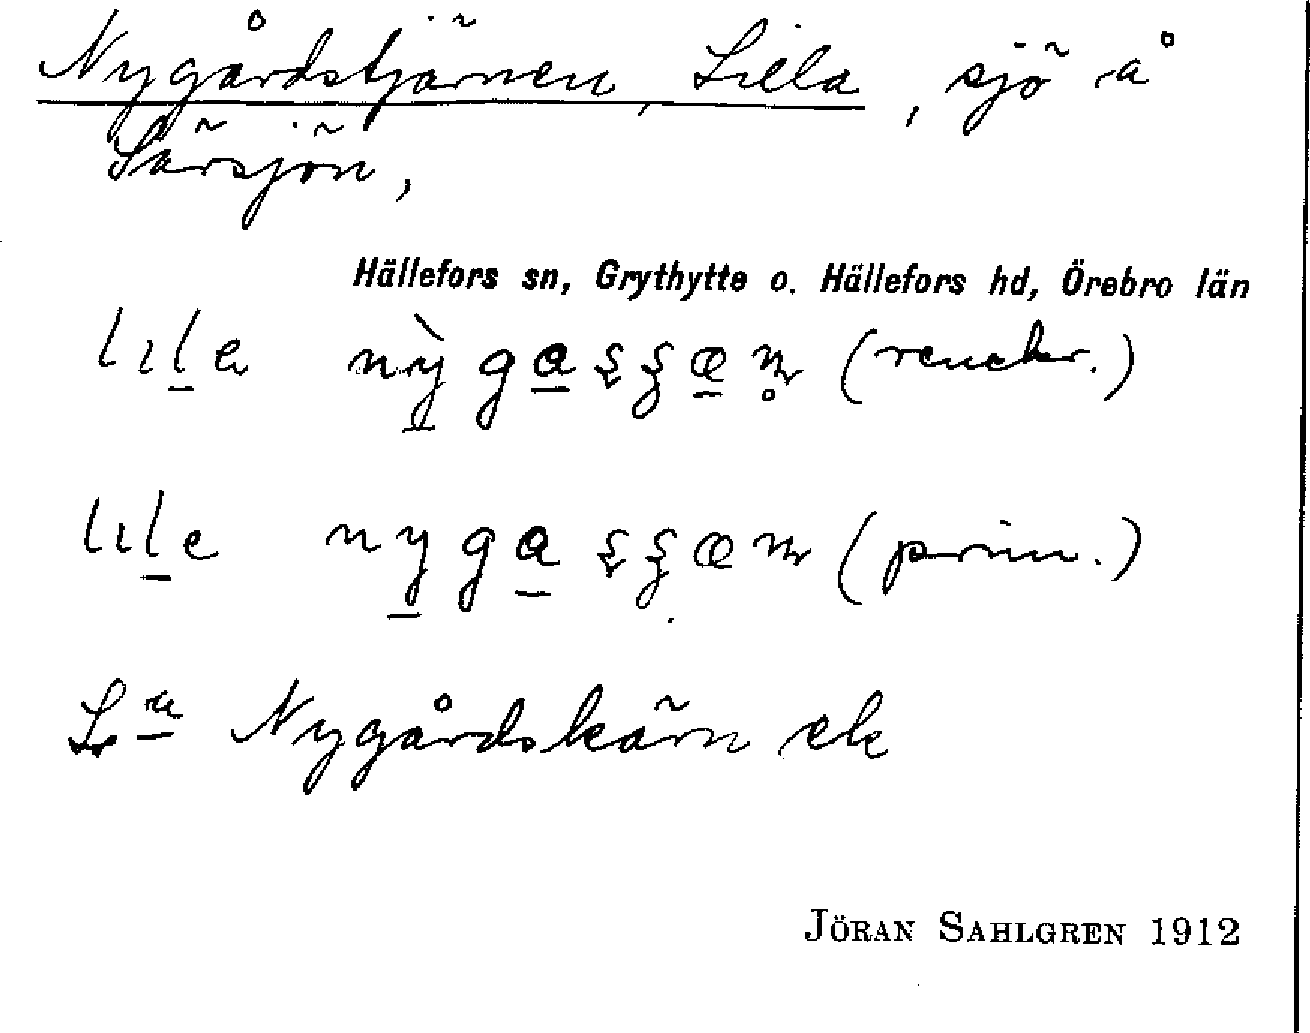 Nygårdstjärnen, Lilla, sjö å
Särsjön,
Hällefors sn, Grythytte o. Hällefors hd, Örebro län
lıla (reuckr.)
lıle (prim.)
L:a Nygårdskärn ek
JÖRAN SAHLGREN 1912